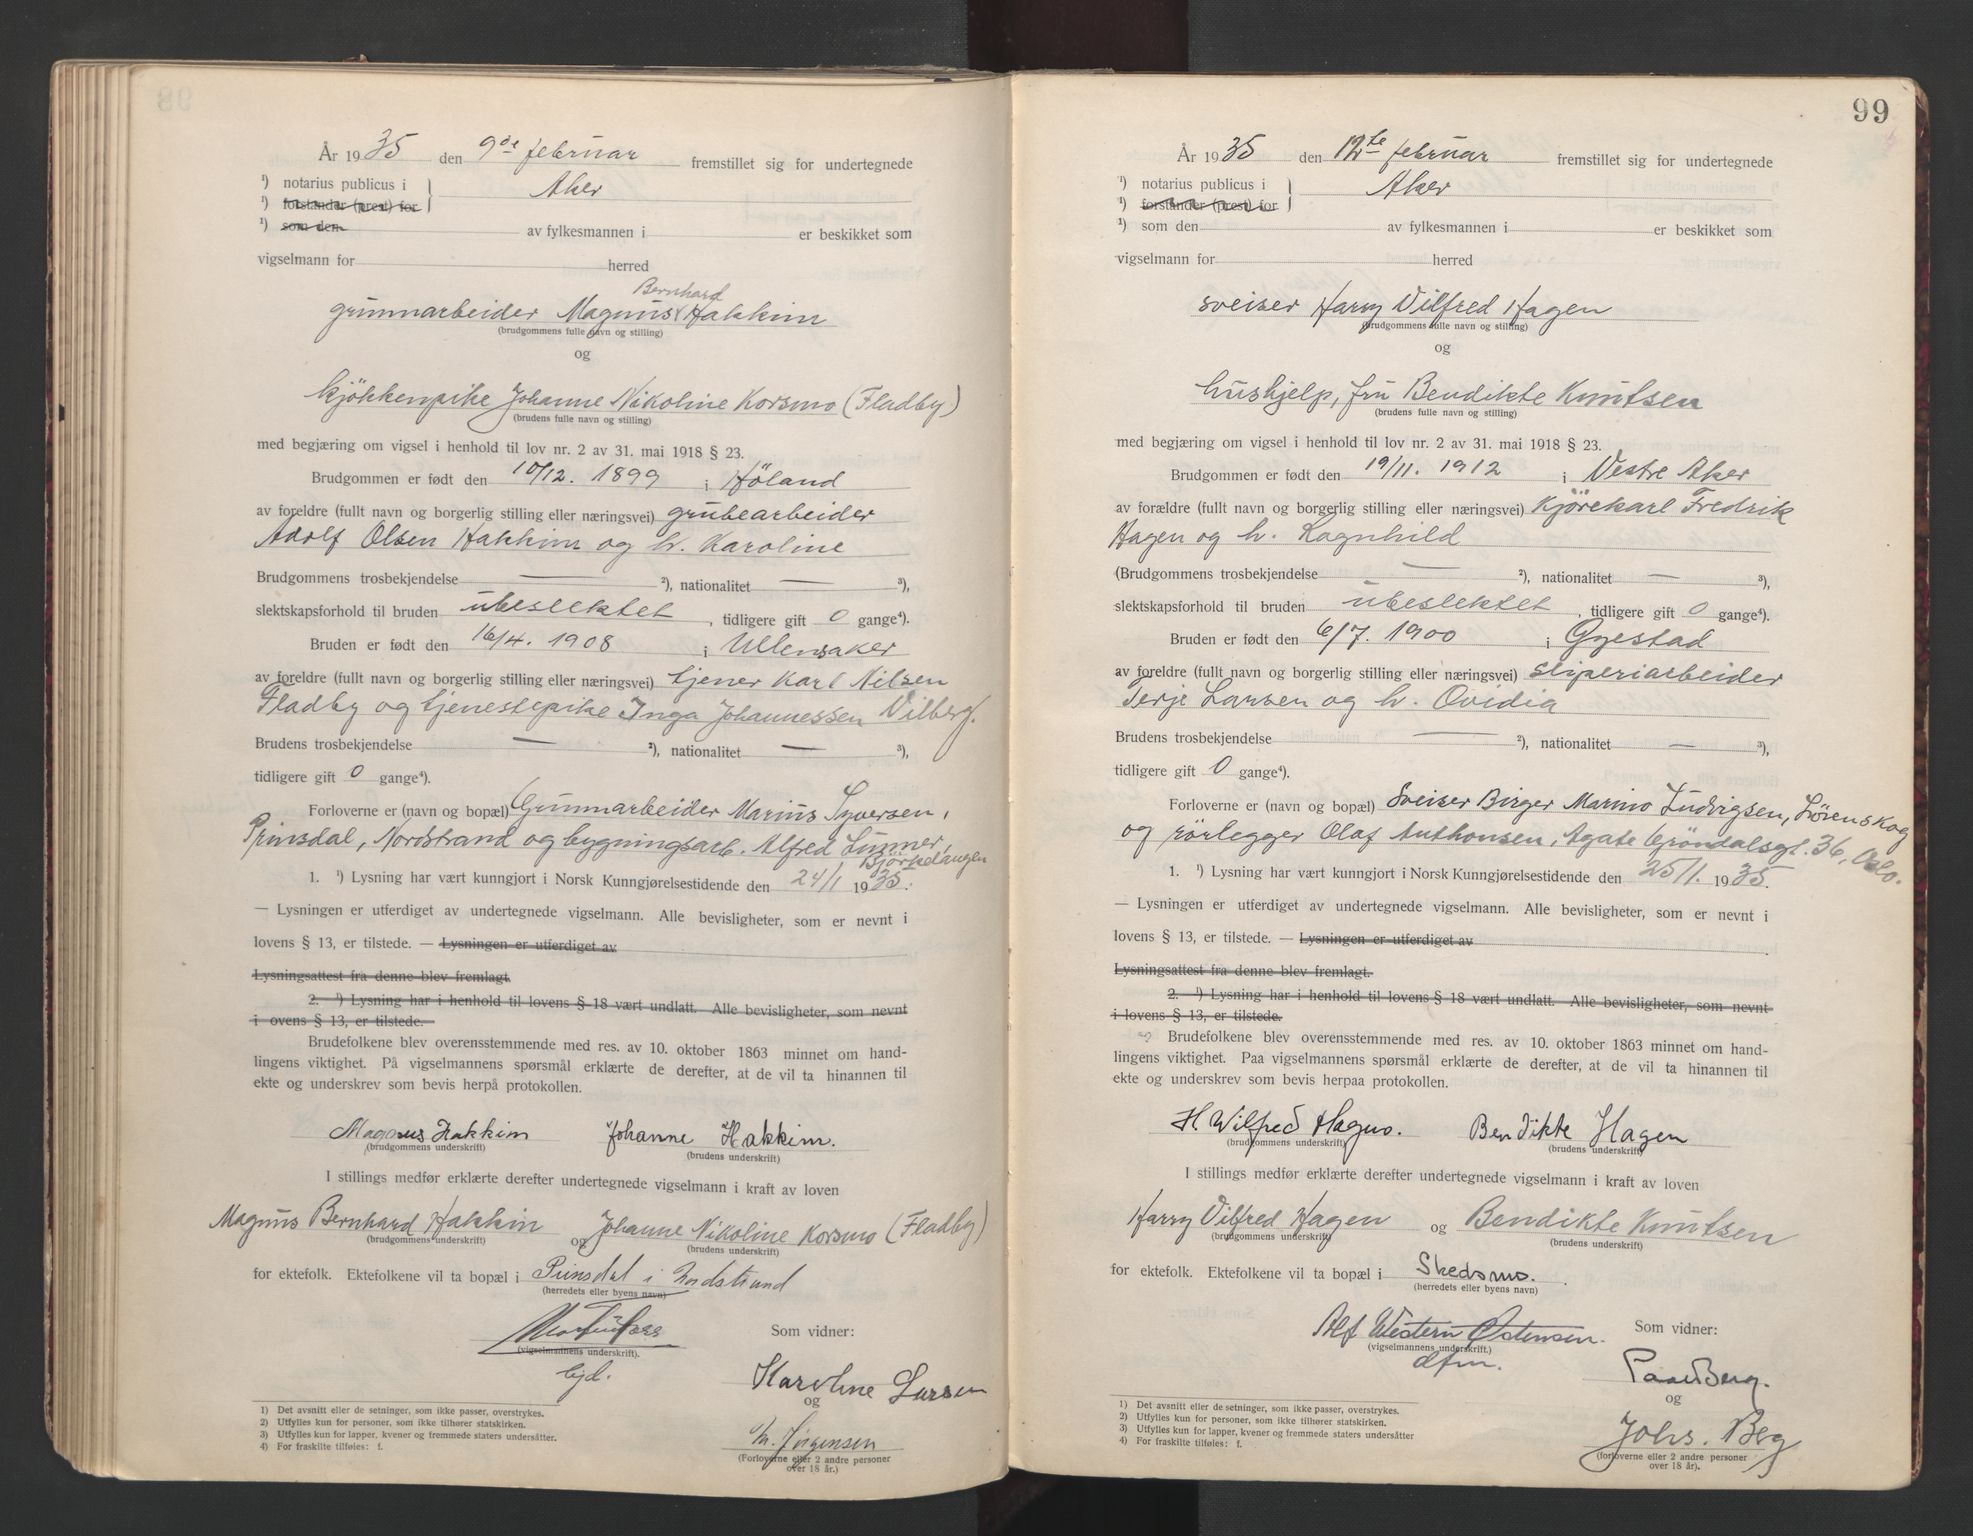 År 1935 den 9de februar fremstillet sig for undertegnede
¹) notarius publicus i Aker
¹) forstander (prest) for
¹) som den av fylkesmannen i er beskikket som
vigselmann for herred
Bernhard
grunnarbeider Magnus Hakkim
(brudgommens fulle navn og stilling)
og
kjökkenpike Johanne Nikoline Korsmo (Fladby)
(brudens fulle navn og stilling)
med begjæring om vigsel i henhold til lov nr. 2 av 31. mai 1918 § 23.
Brudgommen er født den 10/12. 1899 i Höland
av foreldre (fullt navn og borgerlig stilling eller næringsvei) grubearbeider
Adolf Olsen Hakkim og h. Karoline
Brudgommens trosbekjendelse — ²), nationalitet — ³),
slektskapsforhold til bruden ubeslektet, tidligere gift 0 gange⁴).
Bruden er født den 16/4. 1908 i Ullensaker
av foreldre (fullt navn og borgerlig stilling eller næringsvei) tjener Karl Nilsen
Fladby og tjenestepike Inga Johannessen Vilberg.
Brudens trosbekjendelse — ²), nationalitet — ³),
tidligere gift 0 gange⁴).
Forloverne er (navn og bopæl) Grunnarbeider Marius Syversen,
Prinsdal, Nordstrand og bygningsarb. Alfred Lunner,
Björkelangen
1. ¹) Lysning har vært kunngjort i Norsk Kunngjørelsestidende den 24/1 1935.
— Lysningen er utferdiget av undertegnede vigselmann. Alle bevisligheter, som er nevnt i
lovens § 13, er tilstede. — Lysningen er utferdiget av
Lysningsattest fra denne blev fremlagt.
2. ¹) Lysning har i henhold til lovens § 18 vært undlatt. Alle bevisligheter, som nevnt
i ovens § 13, er tilstede.
Brudefolkene blev overensstemmende med res. av 10. oktober 1863 minnet om hand-
lingens viktighet. På vigselmannens spørsmål erklærte de derefter, at de vil ta hinannen til
ekte og underskrev som bevis herpå protokollen.
Magnus Hakkim Johanne Hakkim.
(brudgommens underskrift) (brudens underskrift)
I stillings medfør erklærte derefter undertegnede vigselmann i kraft av loven
Magnus Bernhard Hakkin og Johanne Nikoline Korsmo (Fladby)
(brudgommens underskrift) (brudens underskrift)
for ektefolk. Ektefolkene vil ta bopæl i Prinsdal i Nordstrand
(herredets eller byens navn)
Som vidner:
(vigselmannens underskrift).
Karoline Larsen
og
Jörgensen
(Forloverne eller 2 andre personer
over 18 år.)
1) Det avsnitt eller de setninger, som ikke passer, overstrykes.
2) Utfylles kun for personer, som ikke tilhører statskirken.
3) Utfylles kun for lapper, kvener og fremmede staters undersåtter.
4) For fraskilte tilføies: f.
99
År 1935 den 12te februar fremstillet sig for undertegnede
¹) notarius publicus i Aker
¹) forstander (prest) for
¹) som den av fylkesmannen i er beskikket som
vigselmann for herred
sveiser Harry Vilfred Hagen
(brudgommens fulle navn og stilling)
og
hushjelp, fru Bendikte Knutsen
(brudens fulle navn og stilling)
med begjæring om vigsel i henhold til lov nr. 2 av 31. mai 1918 § 23.
Brudgommen er født den 19/11. 1912 i Vestre Aker
av forældre (fullt navn og borgerlig stilling eller næringsvei) Kjörekarl Fredrik
Hagen og h. Ragnhild
(Brudgommens trosbekjendelse — ²), nationalitet — ³),
slektskapsforhold til bruden ubeslektet, tidligere gift 0 gange⁴).
Bruden er født den 6/7. 1900 i Gjestad
av foreldre (fullt navn og borgerlig stilling eller næringsvei) sliperiarbeider
Terje Larsen og h. Ovidia
Brudens trosbekjendelse — ²), nationalitet — ³),
tidligere gift 0 gange⁴).
Forloverne er (navn og bopæl) Sveiser Birger Marino Ludvigsen, Lörenskog
og rörlegger Olaf Anthonsen, Agate Gröndalsgt. 36, Oslo.
1. ¹) Lysning har vært kunngjort i Norsk Kunngjørelsestidende den 25/1. 1935.
— Lysningen er utferdiget av undertegnede vigselmann. Alle bevisligheter, som er nevnt i
lovens § 13, er tilstede. — Lysningen er utferdiget av
Lysningsattest fra denne blev fremlagt.
2. ¹) Lysning har i henhold til lovens § 18 vært undlatt. Alle bevisligheter, som nevnt
i lovens § 13, er tilstede.
Brudefolkene blev overensstemmende med res. av 10. oktober 1863 minnet om hand-
lingens viktighet. Paa vigselmannens spørsmål erklærte de derefter, at de vil ta hinannen til
ekte og underskrev som bevis herpaa protokollen.
H Wilfred Hagen. Bendikte Hagen
(brudgommens underskrift) (brudens underskrift)
I stillings medfør erklærte derefter undertegnede vigselmann i kraft av loven
Harry Vilfred Hagen og Bendikte Knutsen
(brudgommens underskrift) (brudens underskrift)
for ektefolk. Ektefolkene vil ta bopæl i Skedsmo.
(herredets eller byens navn)
Alf Western Østensen. Som vidner:
(vigselmannens underskrift.)
dfm.
Paal Berg.
og
Johs. Berg
(forloverne eller 2 andre personer
over 18 år).
1) Det avsnitt eller de setninger, som ikke passer, overstrykes.
2) Utfylles kun for personer, som ikke tilhører statskirken.
3) Utfylles kun for lapper, kvener og fremmede staters undersåtter
4) For fraskilte tilføies: f.